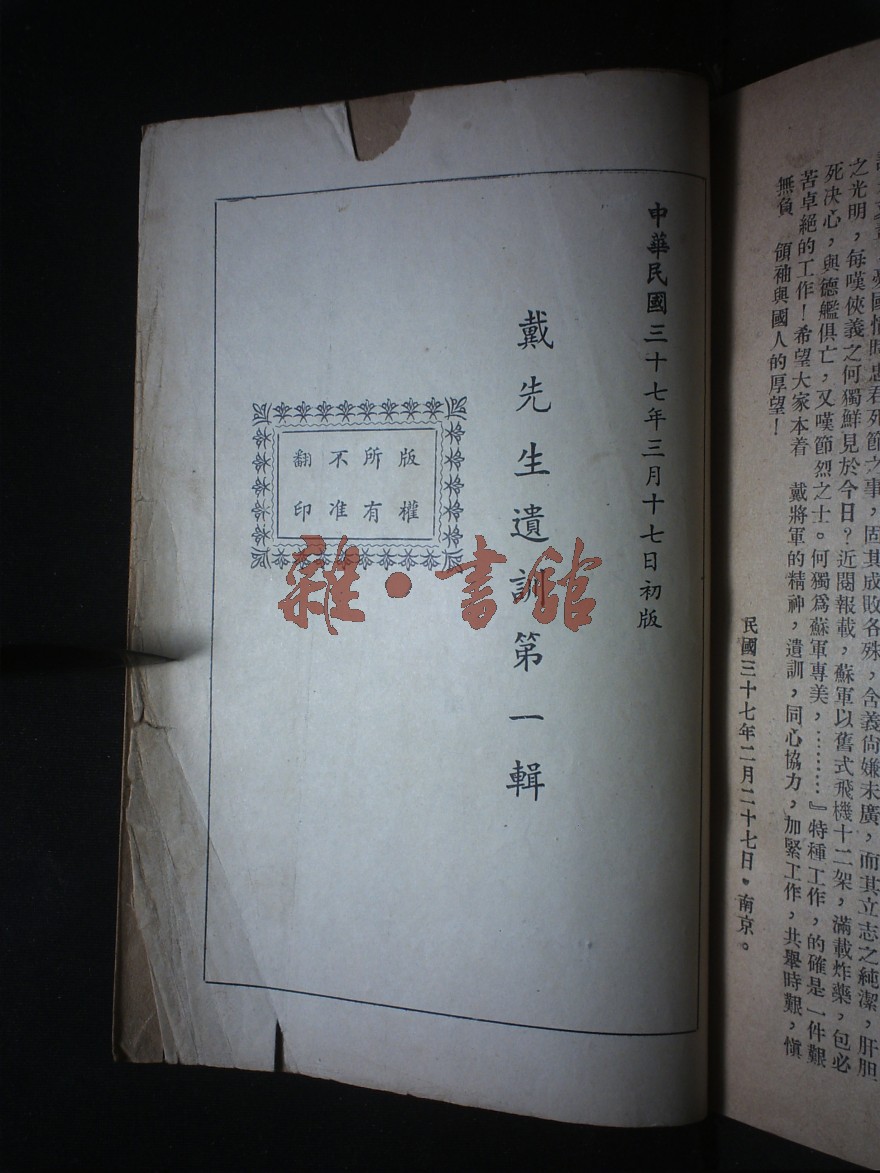 忠君死節之事，固其成敗各殊，含義尙嫌未廣，而其立志之純潔，肝胆
之光明，每嘆俠義之何獨鮮見於今日？近閱報載，蘇軍以舊式飛機十二架，滿載炸藥，包必
死决心，與德艦俱亡，又嘆節烈之士。何獨爲蘇軍專美，………』特種工作，的確是一件艱
苦卓絕的工作！希望大家本着　戴將軍的精神，遺訓，同心協力，加緊工作，共舉時艱，愼
無負　領袖與國人的厚望！
民國三十七年二月二十七日，南京。
中華民國三十七年三月十七日初版
戴先生遺訓第一輯
版權
所有
不准
翻印
雜·書館